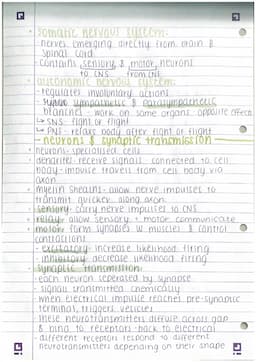 somatic nervous system:
· nerves emerging directly from brain &
spinal cord
· contains sensory & motor neurons
to CNS from CNS
autonomic nervous system:
· regulates involuntary actions
· sympathetic & parasympathetic
branches - work on same organs, opposite effects
↳ SNS: fight or flight
↳ PNS - relaxs body after fight or flight
- neurons & synaptic transmission
· neurons - specialised cells
dendrites - receive signals, connected to cell
body - impulse travels from cell body via
axon
· myelin sheaths - allow nerve impulses to
transmit quicker along axon
· sensory - carry nerve impulses to CNS
· relay - allow sensory + motor communicate
· motor - form synapses w muscles & control
contractions
· excitatory - increase likelihood firing
· inhibitory - decrease likelihood firing
synaptic transmission:
· each neuron separated by synapse
· signals transmitted chemically
· when electrical impulse reaches pre-synaptic
terminal, triggers vesicles
· these neurotransmitters diffuse across gap
& bind to receptors - back to electrical
· different receptors respond to different
neurotransmitters depending on their shape